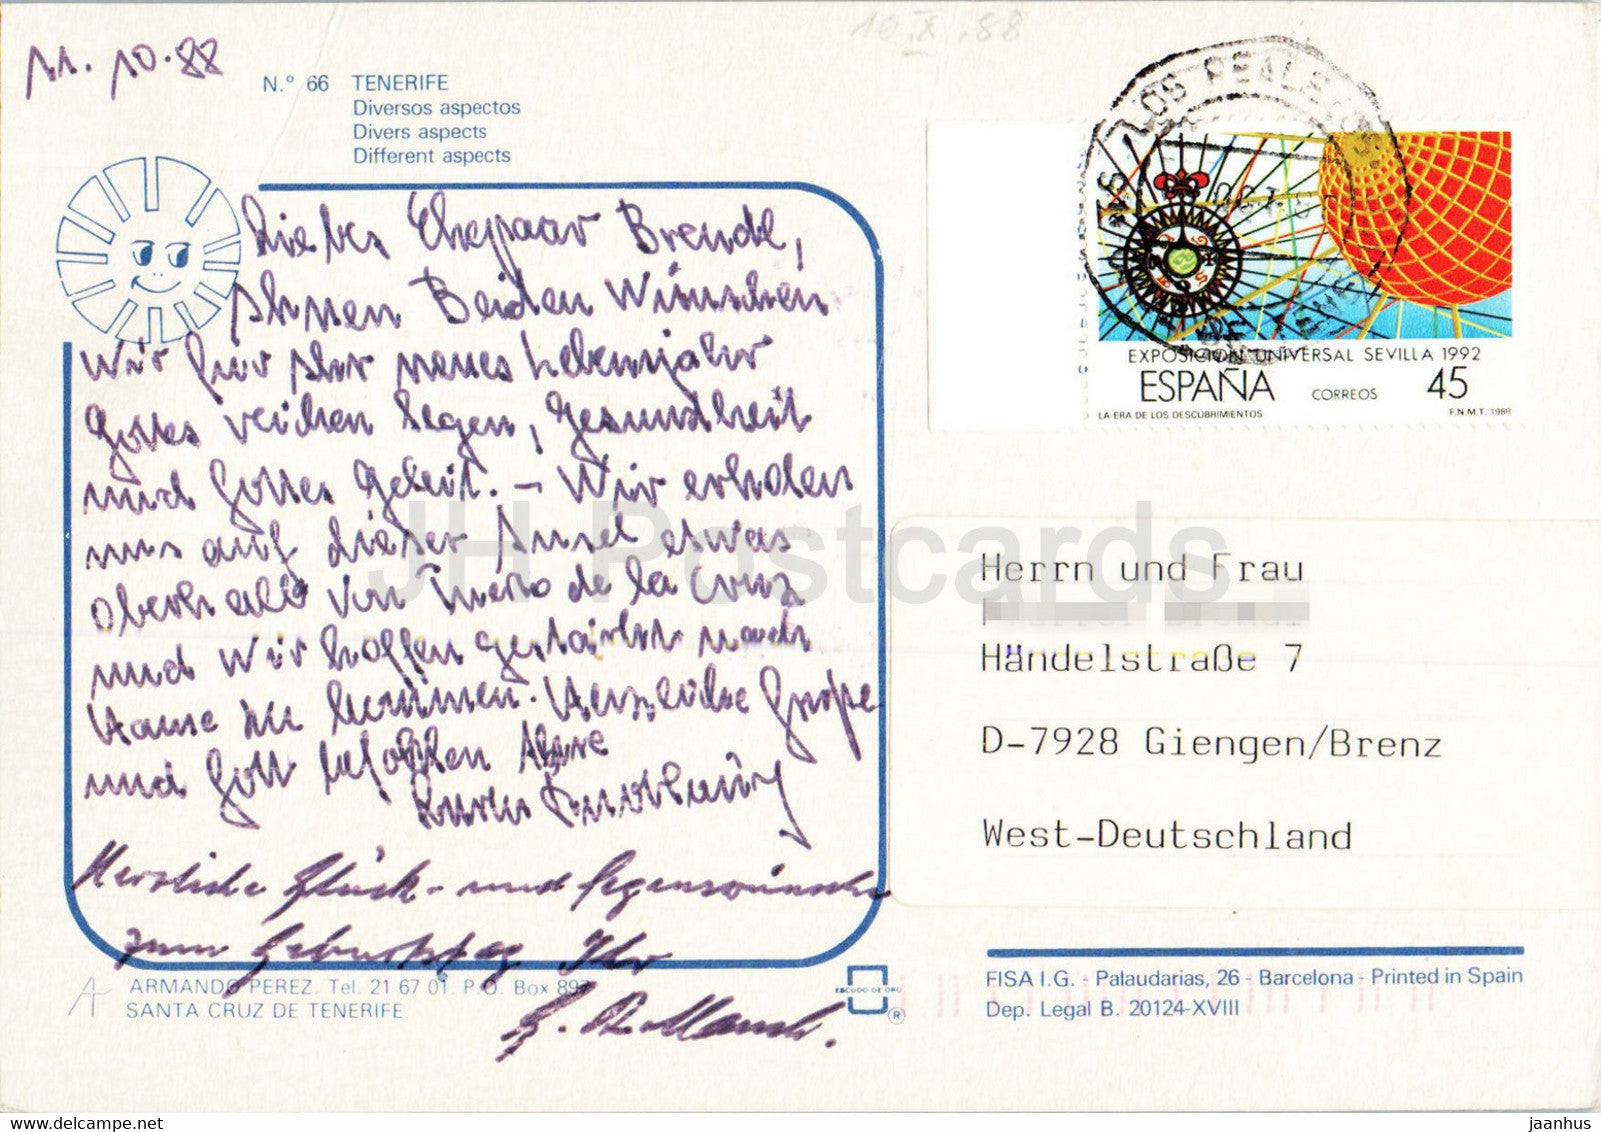 11.10.88
10.X.88
N.º 66 TENERIFE
Diversos aspectos
Divers aspects
Different aspects
Liebes Ehepaar Brendl,
Ihnen Beiden Wünschen
wir für Ihr neues Lebensjahr
Gottes reichen Segen, Gesundheit
und Gottes Geleit. – Wir erholen
uns auf dieser Insel etwas
oberhalb von Puerto de la Cruz
und wir hoffen gestärkt nach
Hause zu kommen. Herzliche Grüße
und Gott befohlen Ihre
Herzliche Glück- und Segenswünsche
zum Geburtstag Ihr
LOS REALEJOS
OCT
EXPOSICION UNIVERSAL SEVILLA 1992
ESPAÑA CORREOS 45
LA ERA DE LOS DESCUBRIMIENTOS F.N.M.T. 1988
Herrn und Frau
Händelstraße 7
D-7928 Giengen/Brenz
West-Deutschland
ARMANDO PEREZ. Tel. 21 67 01. P.O. Box 897
SANTA CRUZ DE TENERIFE
ESCUDO DE ORO
®
FISA I.G. - Palaudarias, 26 - Barcelona - Printed in Spain
Dep. Legal B. 20124-XVIII
JH Postcards
delcampe.net
jaanhus